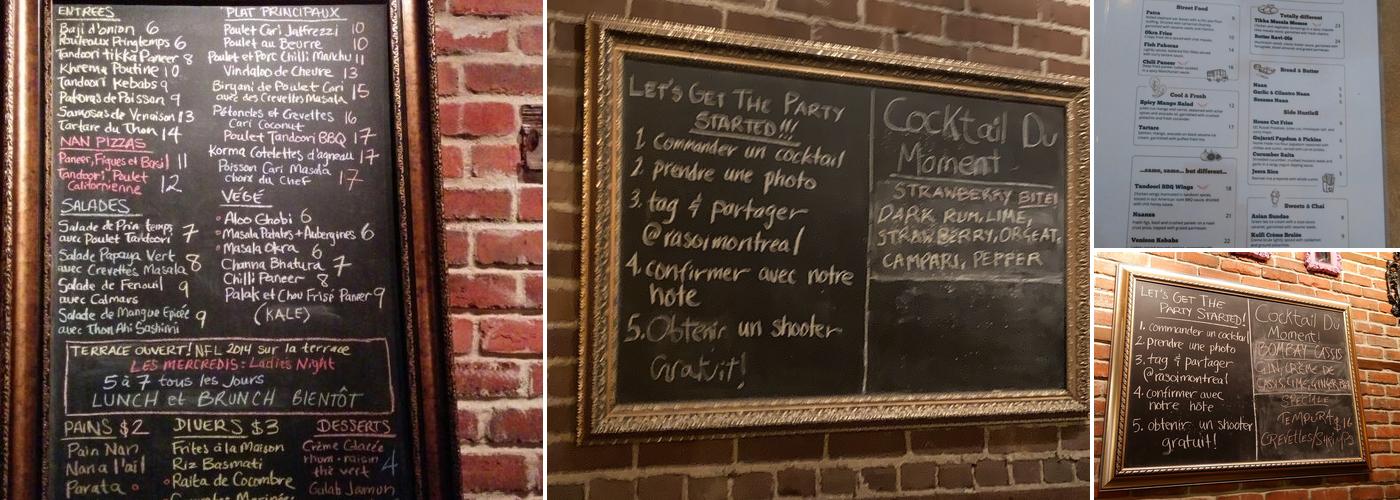 ENTREES
Baji d'onion 6
Rouleaux Printemps 6
Tandoori tikka Paneer 8
Kheema Poutine 10
Tandoori Kebabs 9
Pakoras de Poisson 9
Samosas de Venaison 13
Tartare du Thon 14
NAN PIZZAS
Paneer, Figues et Basil 11
Tandoori, Poulet
Californienne 12
SALADES
Salade de Prin temps
avec Poulet Tandoori 7
Salade Papaya Vert
avec Crevettes Masala 8
Salade de Fenouil 9
avec Calmars
Salade de Mangue Epicé 9
avec Thon Ahi Sashimi
PLAT PRINCIPAUX
Poulet Cari Jalfrezzi 10
Poulet au Beurre 10
Poulet et Porc Chilli Manchu 11
Vindaloo de Chevre 13
Biryani de Poulet Cari 15
avec des Crevettes Masala
Pétoncles et Crevettes 16
Cari Coconut
Poulet Tandoori BBQ 17
Korma Cotelettes d'agneau 17
Poisson Cari Masala
choix du Chef 17
VÉGÉ
Aloo Ghobi 6
Masala Patates + Aubergines 6
Masala Okra 6
Channa Bhatura 7
Chilli Paneer 8
Palak et Chou Frisé Paneer 9
(KALE)
TERRACE OUVERT! NFL 2014 sur la terrace
LES MERCREDIS: Ladies Night
5 à 7 tous les Jours
LUNCH et BRUNCH BIENTÔT
PAINS $2
Pain Nan
Nan a l'ail
Parata
DIVERS $3
Frites à la Maison
Riz Basmati
Raita de Cocombre
DESSERTS
Crème Glacée
rhum-raisin
thé vert 4
Gulab Jamun
LET'S GET THE PARTY
STARTED!!!
1. commander un cocktail
2. prendre une photo
3. tag & partager
@rasoimontreal
4. confirmer avec notre
hote
5. Obtenir un shooter
Gratuit!
Cocktail Du
Moment
STRAWBERRY BITE!
DARK RUM, LIME,
STRAWBERRY, ORGEAT,
CAMPARI, PEPPER
Street Food
Patra
Okra Fries
Fish Pakoras
Chili Paneer
Cool & Fresh
Spicy Mango Salad 12
Tartare 17
...same, same... but different...
Tandoori BBQ Wings 18
Naanza 21
Venison Kebabs 22
Totally different
Tikka Masala Momos
Butter Ravi-Ols
Bread & Butter
Naan
Garlic & Cilantro Naan
Sesame Naan
Side Hustle$
House Cut Fries
Gujarati Papdum & Pickles
Cucumber Raita
Jeera Rice
Sweets & Chai
Asian Sundae
Kulfi Crème Brulée
LET'S GET THE
PARTY STARTED!
1. commander un cocktail
2. prendre une photo
3. tag & partager
@rasoimontreal
4. confirmer avec
notre hôte
5. obtenir un shooter
gratuit!
Cocktail Du
Moment!
BOMBAY CASSIS
GIN, CRÈME DE
CASIS, LIME, GINGER BEER
SPECIALE
TEMPURA $16
CREVETTES/SHRIMPS